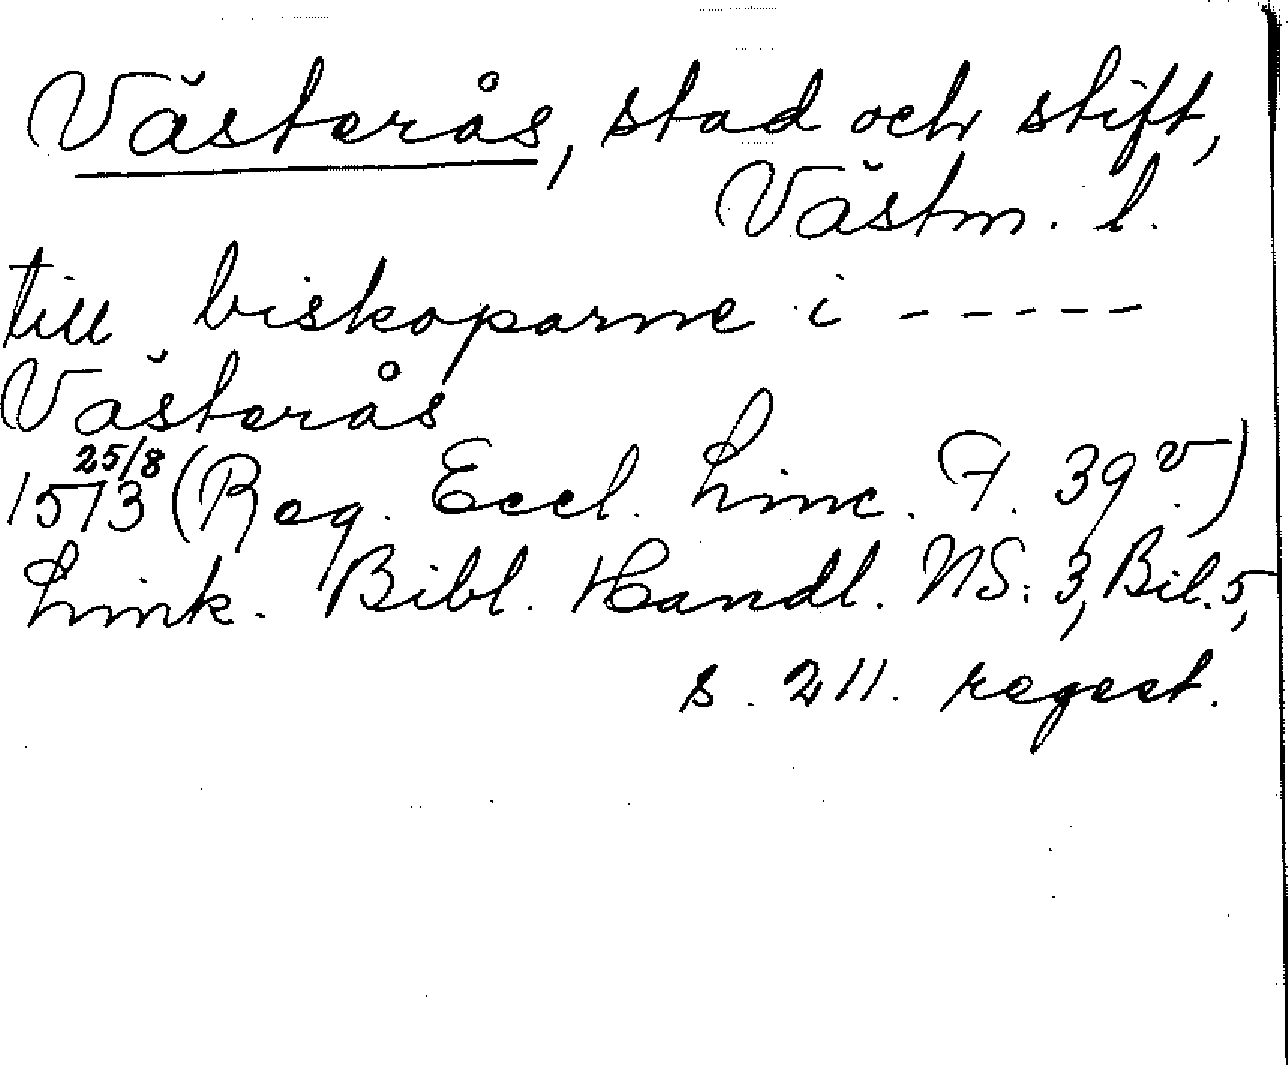 Västerås, stad och stift,
Västm. l.
till biskoparne i -----
Västerås
1573 25/8 (Reg. Eccl. Linc. F. 39v.)
Link. Bibl. Handl. NS: 3, Bil. 5,
s. 211. regest.